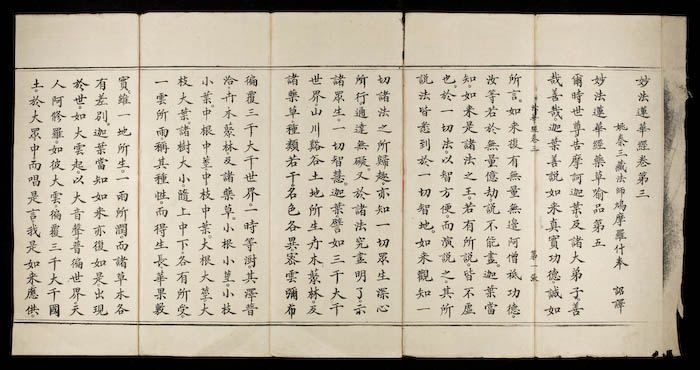 妙法蓮華經卷第三
姚秦三藏法師鳩摩羅什奉 詔譯
妙法蓮華經藥草喻品第五
爾時世尊告摩訶迦葉及諸大弟子善
哉善哉。迦葉善說如來真實功德。誠如
第一張
所言。如來復有無量無邊阿僧祇功德。
汝等若於無量億劫。說不能盡。迦葉當
知。如來是諸法之王。若有所說。皆不虛
也。於一切法。以智方便而演說之。其所
說法。皆悉到於一切智地。如來觀知一
切諸法之所歸趣。亦知一切眾生深心
所行。通達無礙。又於諸法究盡明了。示
諸眾生一切智慧。迦葉。譬如三千大千
世界山川谿谷土地所生卉木藂林。及
諸藥草。種類若干。名色各異。密雲彌布
徧覆三千大千世界。一時等澍。其澤普
洽。卉木藂林。及諸藥草。小根小莖。小枝
小葉。中根中莖。中枝中葉。大根大莖。大
枝大葉。諸樹大小。隨上中下。各有所受。
一雲所雨。稱其種性。而得生長。華果敷
實。雖一地所生。一雨所潤。而諸草木各
有差別。迦葉當知。如來亦復如是。出現
於世。如大雲起。以大音聲。普徧世界。天
人阿修羅。如彼大雲徧覆三千大千國
土。於大眾中而唱是言。我是如來應供。